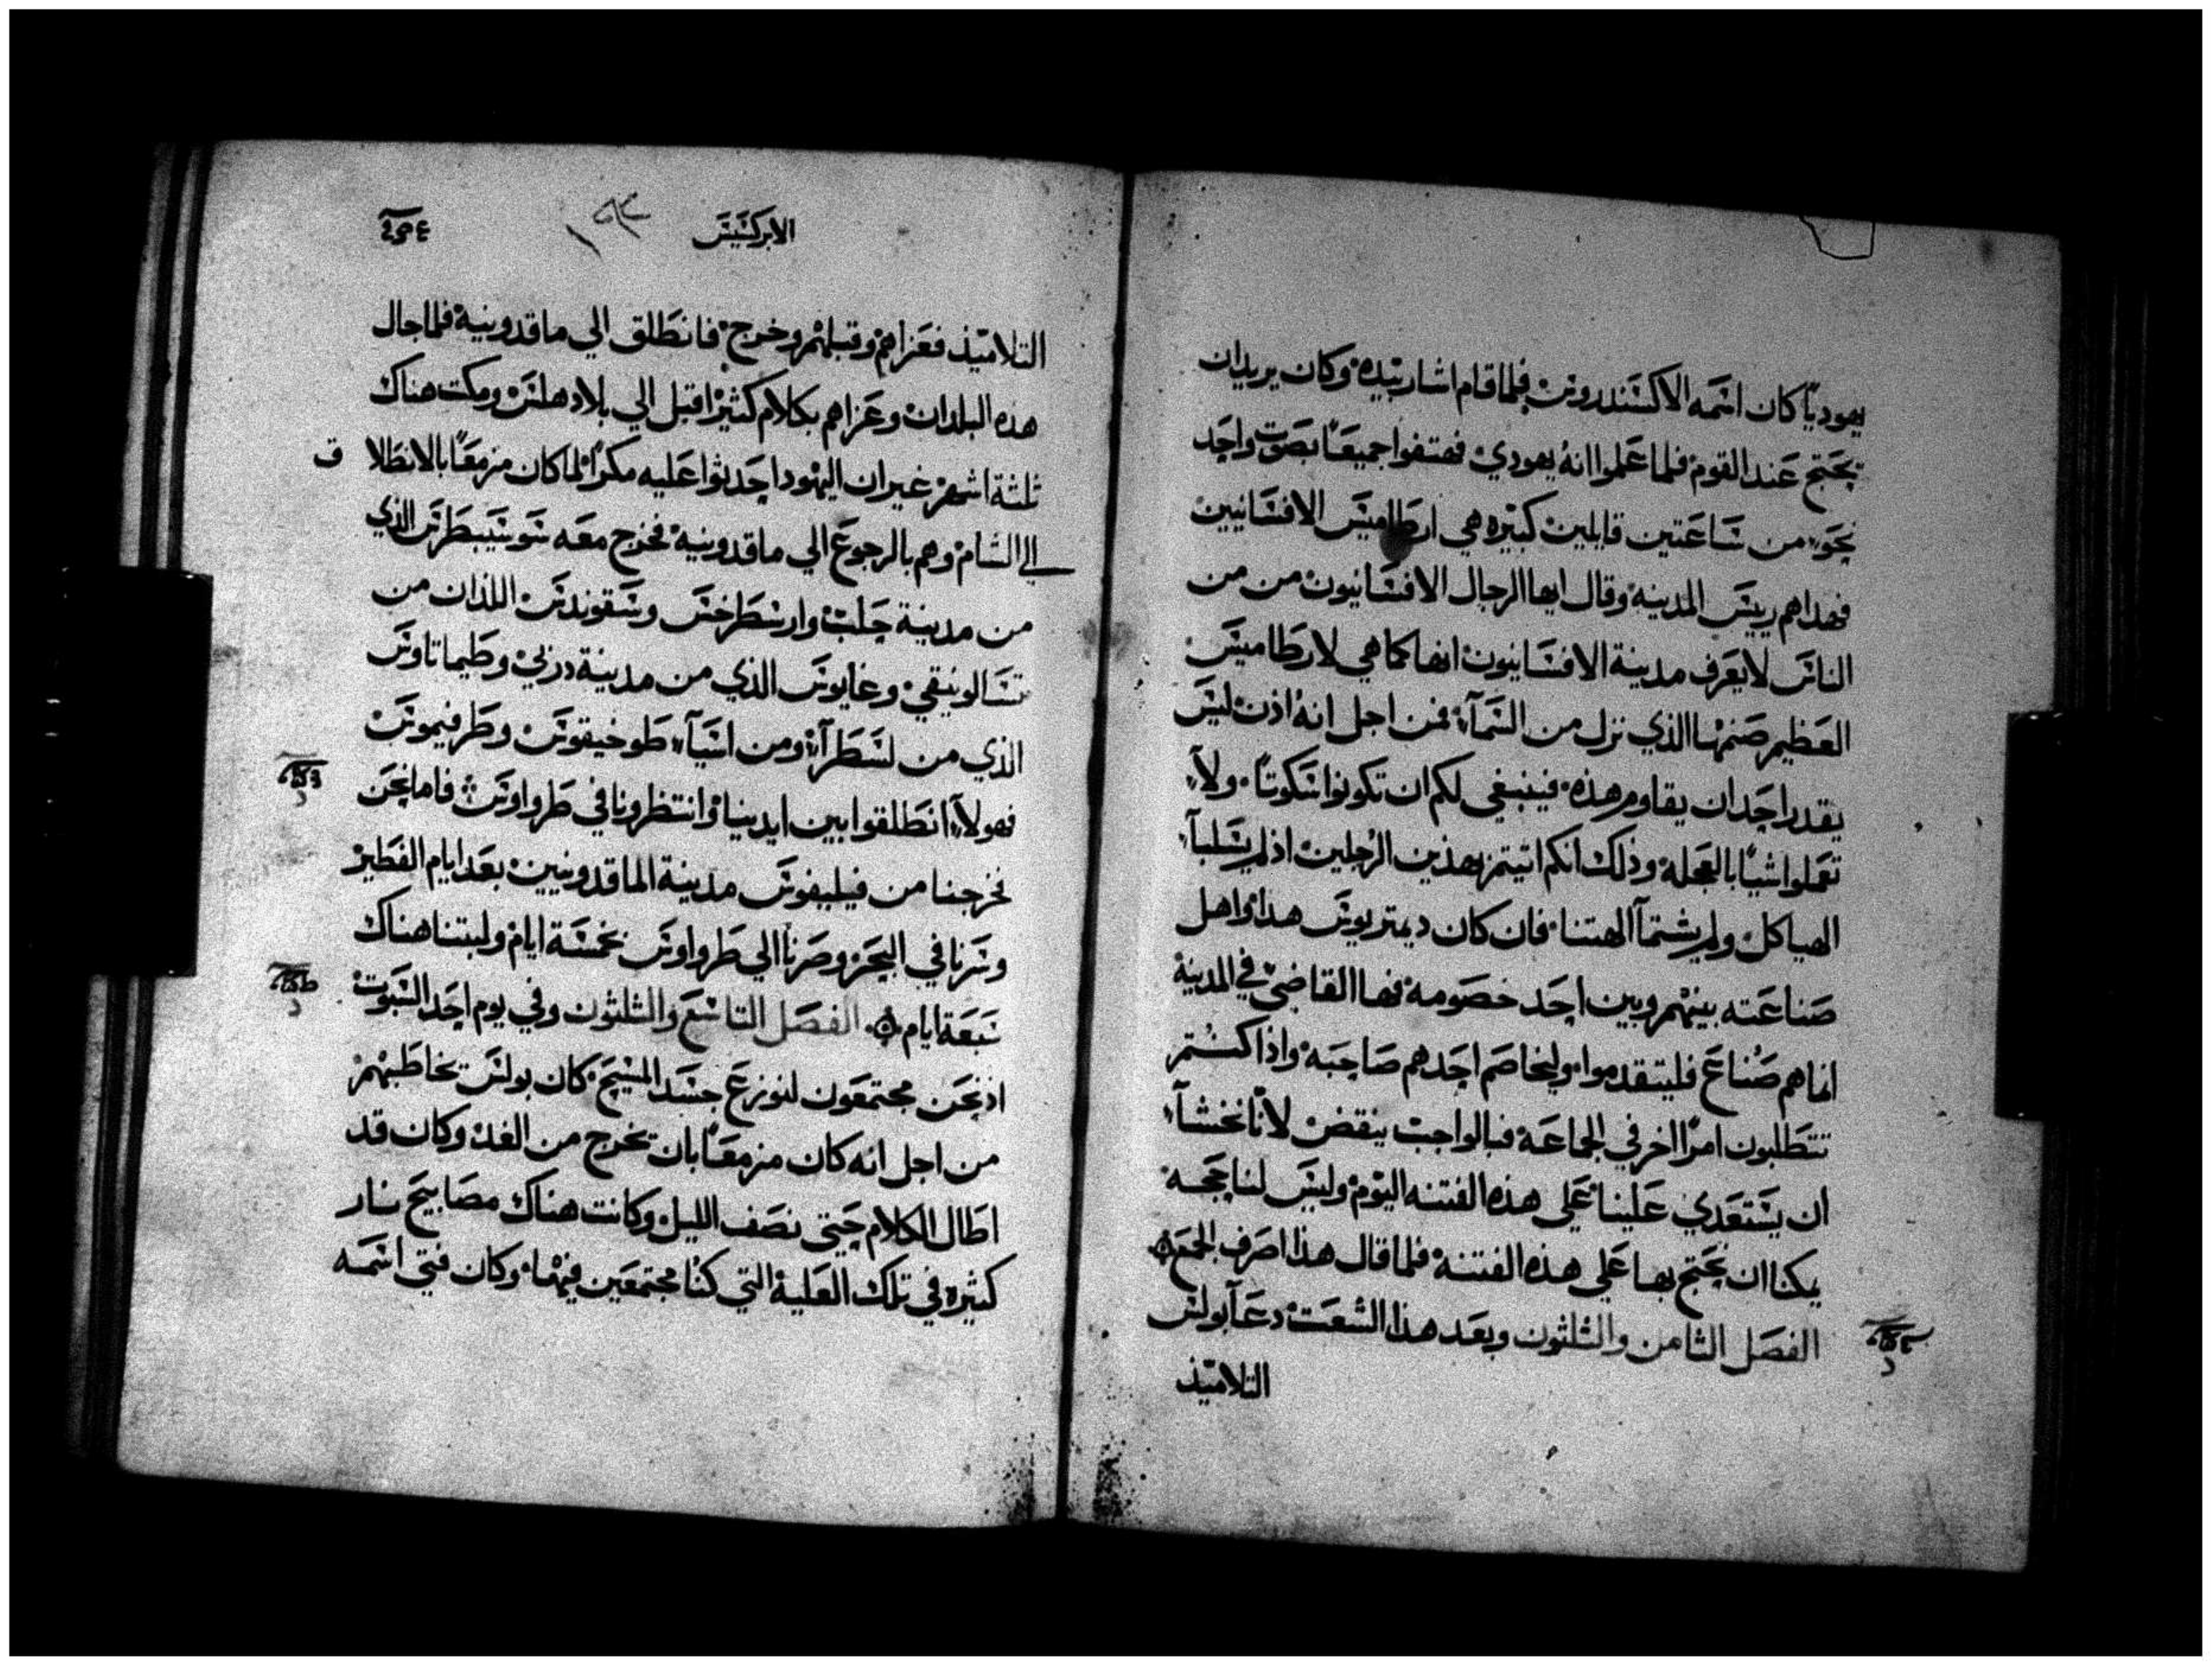 يهوديًا كان اسمه الاكسندروس فلما قام اشار بيده وكان يريد ان
يحتج عند القوم فلما علموا انه يهودي فهتفوا جميعًا بصوت واحد
نحو من ساعتين قايلين كبيره هي ارطاميس الافسانيين
فهداهم رييس المدينه وقال ايها الرجال الافسانيون من من
الناس لا يعرف مدينة الافسانيون انها كما هي لارطاميس
العظيم صنمها الذي نزل من السمآء فمن اجل انه اذن ليس
يقدر احد ان يقاوم هذه فينبغي لكم ان تكونوا سكوتًا ولآ
تعملوا شيًا بالعجله وذلك انكم اتيتم بهذين الرجلين اذ لم يسلبآ
الهياكل ولم يشتمآ الهتنا فان كان ديمتريوس هدا واهل
صناعته بينهم وبين احد خصومة فها القاضي في المدينة
انما هم صُناع فليتقدموا وليخاصم احدهم صاحبه واذا كنتم
تتطلبون امرًا اخر في الجماعة فبالواجب ينقض لانّا نخشآ
ان يستعدي علينا علي هذه الفتنه اليوم وليس لنا حجه
يمكنا ان نحتج بها علي هذه الفتنة فلما قال هذا اصرف الجمع
الفصل الثامن والثلثون وبعد هذا الشعت دعآ بولس
التلاميذ
الابركسيس
التلاميذ فعزاهم وقبلهم وخرج فانطلق الي ماقدونية فلما جال
هذه البلدان وعزاهم بكلام كثير اقبل الي بلاد هلس ومكت هناك
ثلثة اشهر غير ان اليهود احدثوا عليه مكرًا لما كان مزمعًا بالانطلا ق
الي الشام وهم بالرجوع الي ماقدونيه فخرج معه سوسيبطرس الذي
من مدينة حلب وارسطرخس وسقوندس اللذان من
تسالونيقي وغايوس الذي من مدينة دربي وطيماتاوس
الذي من لسطرآ ومن اسيآ طوخيقوس وطرفيموس
فهولآء انطلقوا بين ايدينا وانتظرونا في طرواوس فاما نحن
فخرجنا من فيليفوس مدينة الماقدونيين بعد ايام الفطير
وسرنا في البحر وصرنا الي طرواوس بخمسة ايام ولبتنا هناك
سبعة ايام الفصل التاسع والثلثون وفي يوم احد السبوت
اذ نحن مجتمعون لنوزع جسد المسيح كان بولس يخاطبهم
من اجل انه كان مزمعًا بان يخرج من الغد وكان قد
اطال الكلام حتي نصف الليل وكانت هناك مصابيح نار
كثيره في تلك العلية التي كنا مجتمعين فيها وكان فتي اسمه